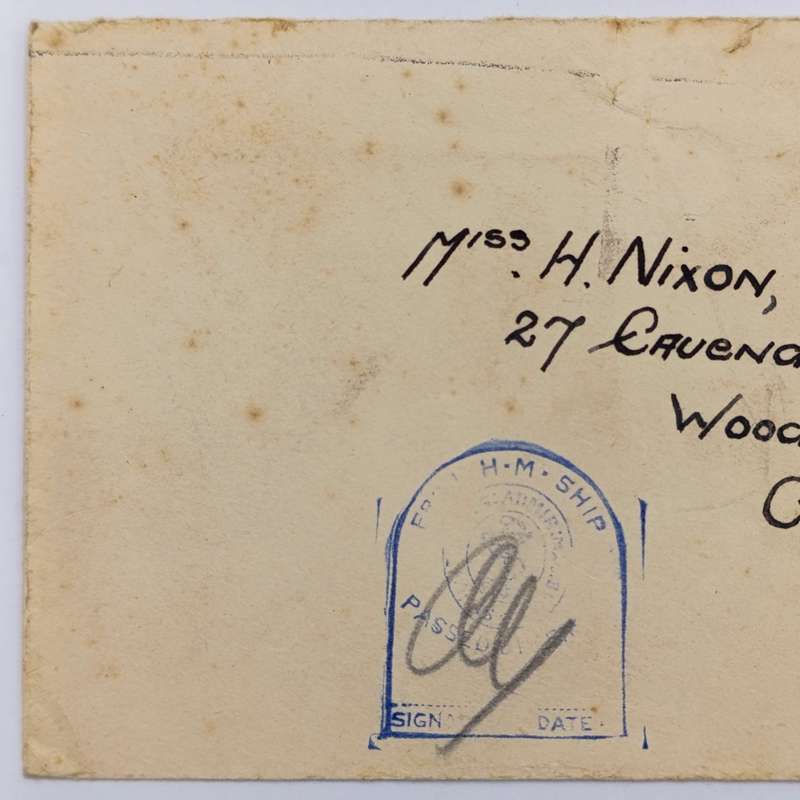 Miss. H. Nixon,
27 Cavend
Wood
H·M·SHIP
PASSED
SIGN
DATE·